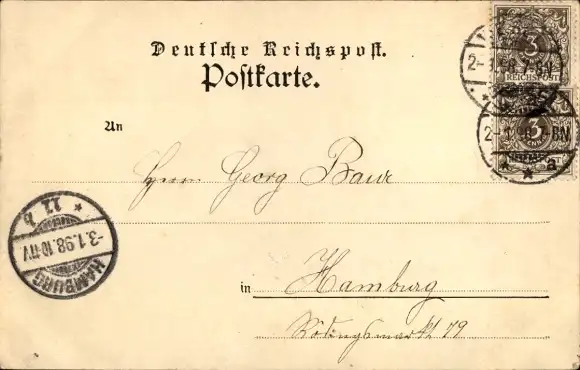 Deutsche Reichspost.
Postkarte.
3
REICHSPOST
2-1.98.7-8N
3
2-1.98.7-8N
* * a
An
Herrn Georg Baur
HAMBURG
-3.1.98.10-11V
* 11 b
in Hamburg
Rödingsmarkt 79